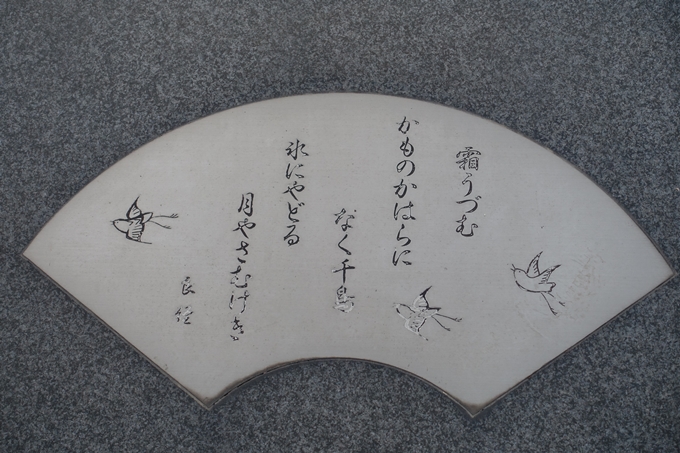 霜うづむ
かものかはらに
なく千鳥
氷にやどる
月やさむけき
良経